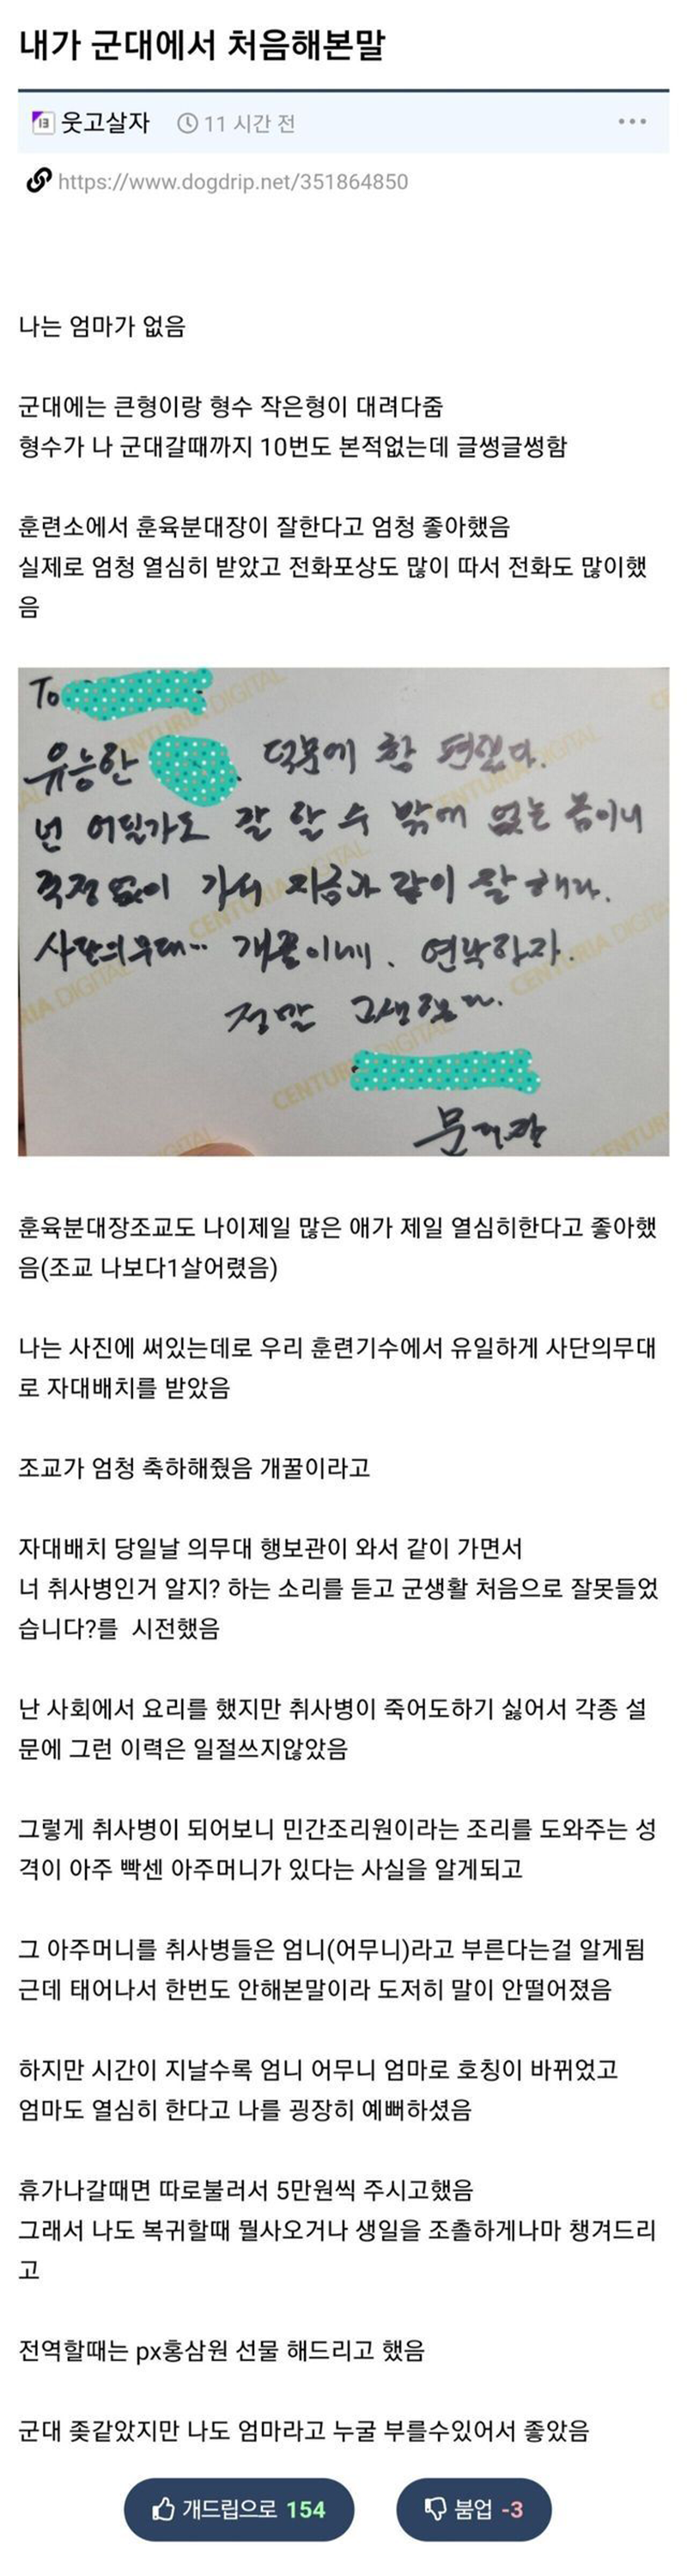 내가 군대에서 처음해본말
웃고살자 11 시간 전
https://www.dogdrip.net/351864850
나는 엄마가 없음
군대에는 큰형이랑 형수 작은형이 대려다줌
형수가 나 군대갈때까지 10번도 본적없는데 글썽글썽함
훈련소에서 훈육분대장이 잘한다고 엄청 좋아했음
실제로 엄청 열심히 받았고 전화포상도 많이 따서 전화도 많이했
음
To
유능한 덕분에 참 편했다.
넌 어딜가도 잘 할 수 밖에 없는 놈이니
걱정 없이 가서 지금과 같이 잘 해라.
사단의무대.. 개꿀이네. 연락하자.
정말 고생했다.
CENTURIA DIGITAL
훈육분대장조교도 나이제일 많은 애가 제일 열심히한다고 좋아했
음(조교 나보다1살어렸음)
나는 사진에 써있는데로 우리 훈련기수에서 유일하게 사단의무대
로 자대배치를 받았음
조교가 엄청 축하해줬음 개꿀이라고
자대배치 당일날 의무대 행보관이 와서 같이 가면서
너 취사병인거 알지? 하는 소리를 듣고 군생활 처음으로 잘못들었
습니다?를 시전했음
난 사회에서 요리를 했지만 취사병이 죽어도하기 싫어서 각종 설
문에 그런 이력은 일절쓰지않았음
그렇게 취사병이 되어보니 민간조리원이라는 조리를 도와주는 성
격이 아주 빡센 아주머니가 있다는 사실을 알게되고
그 아주머니를 취사병들은 엄니(어무니)라고 부른다는걸 알게됨
근데 태어나서 한번도 안해본말이라 도저히 말이 안떨어졌음
하지만 시간이 지날수록 엄니 어무니 엄마로 호칭이 바뀌었고
엄마도 열심히 한다고 나를 굉장히 예뻐하셨음
휴가나갈때면 따로불러서 5만원씩 주시고했음
그래서 나도 복귀할때 뭘사오거나 생일을 조촐하게나마 챙겨드리
고
전역할때는 px홍삼원 선물 해드리고 했음
군대 좆같았지만 나도 엄마라고 누굴 부를수있어서 좋았음
개드립으로 154 붐업 -3